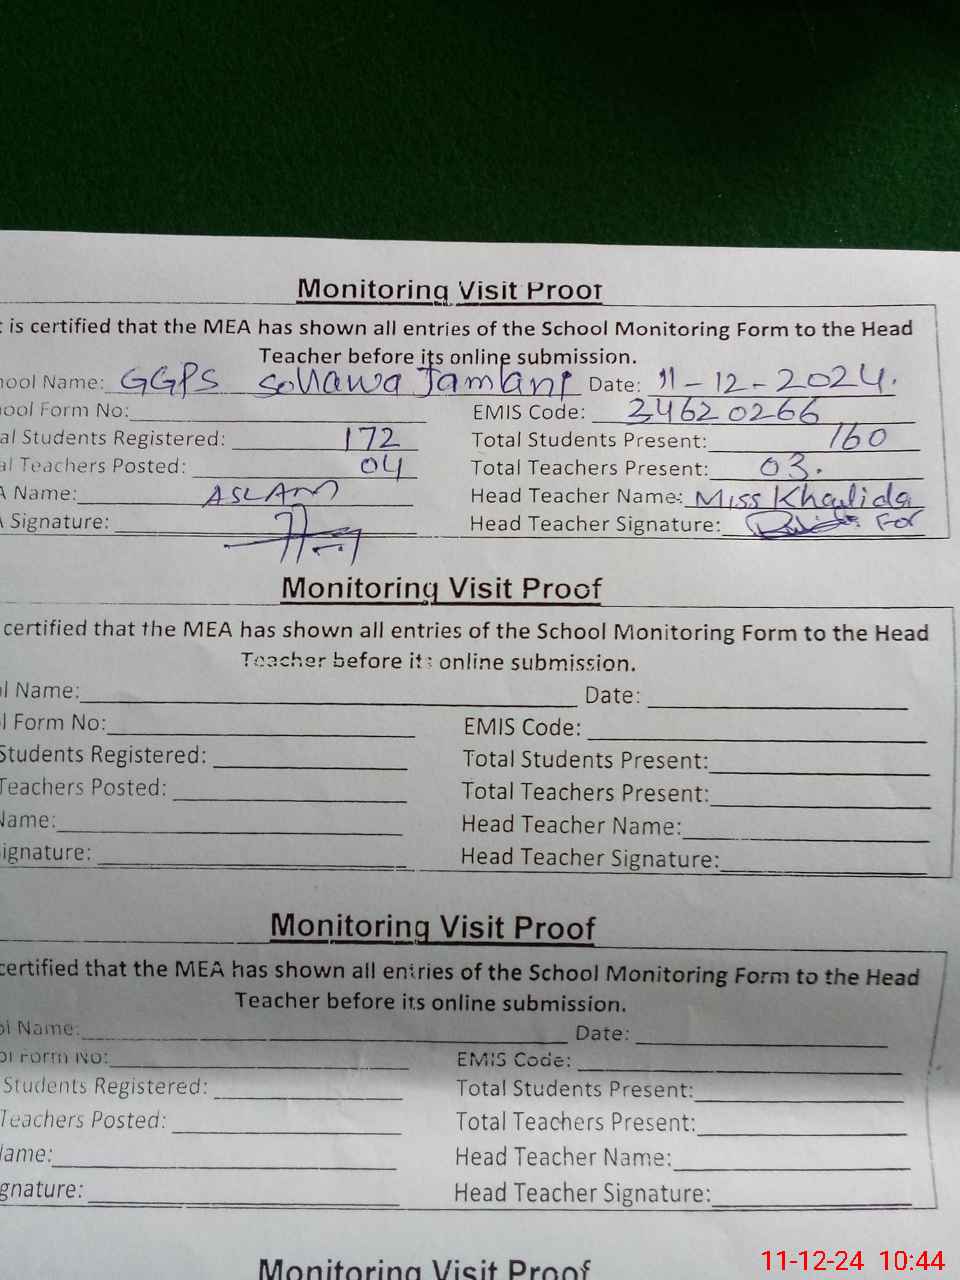 Monitoring Visit Proof
t is certified that the MEA has shown all entries of the School Monitoring Form to the Head
Teacher before its online submission.
hool Name: GGPS Sohawa Jamlani Date: 11-12-2024.
hool Form No: EMIS Code: 34620266
al Students Registered: 172 Total Students Present: 160
al Teachers Posted: 04 Total Teachers Present: 03.
A Name: ASLAM Head Teacher Name: Miss Khalida
A Signature: Head Teacher Signature: For
Monitoring Visit Proof
certified that the MEA has shown all entries of the School Monitoring Form to the Head
Teacher before its online submission.
l Name: Date:
l Form No: EMIS Code:
Students Registered: Total Students Present:
Teachers Posted: Total Teachers Present:
Name: Head Teacher Name:
ignature: Head Teacher Signature:
Monitoring Visit Proof
certified that the MEA has shown all entries of the School Monitoring Form to the Head
Teacher before its online submission.
ol Name: Date:
ol Form No: EMIS Code:
Students Registered: Total Students Present:
Teachers Posted: Total Teachers Present:
lame: Head Teacher Name:
gnature: Head Teacher Signature:
Monitoring Visit Proof
11-12-24 10:44